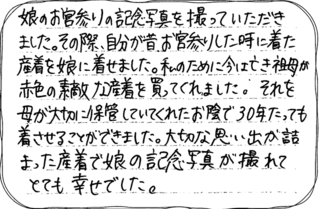 娘のお宮参りの記念写真を撮っていただき
ました。その際、自分が昔、お宮参りした時に着た
産着を娘に着せました。私のために今は亡き祖母が
赤色の素敵な産着を買ってくれました。それを
母が大切に保管していてくれたお陰で30年たっても
着させることができました。大切な思い出が詰
まった産着で娘の記念写真が撮れて
とても幸せでした。